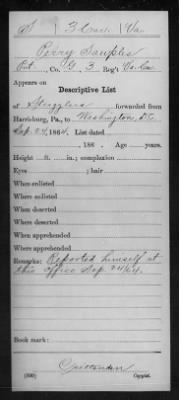 S | 3 Cav. | Va.
Perry Samples
Pvt., Co. G, 3 Reg't Va. Cav.
Appears on
Descriptive List
of Stragglers forwarded from
Harrisburg, Pa., to Washington, D.C.
Sep. 24, 1864. List dated
, 186 . Age years.
Height ft. in.; complexion
Eyes ; hair
When enlisted
Where enlisted
When deserted
Where deserted
When apprehended
Where apprehended
Remarks: Reported himself at
this office Sep. 24/64.
Book mark:
Crittenden
Copyist.